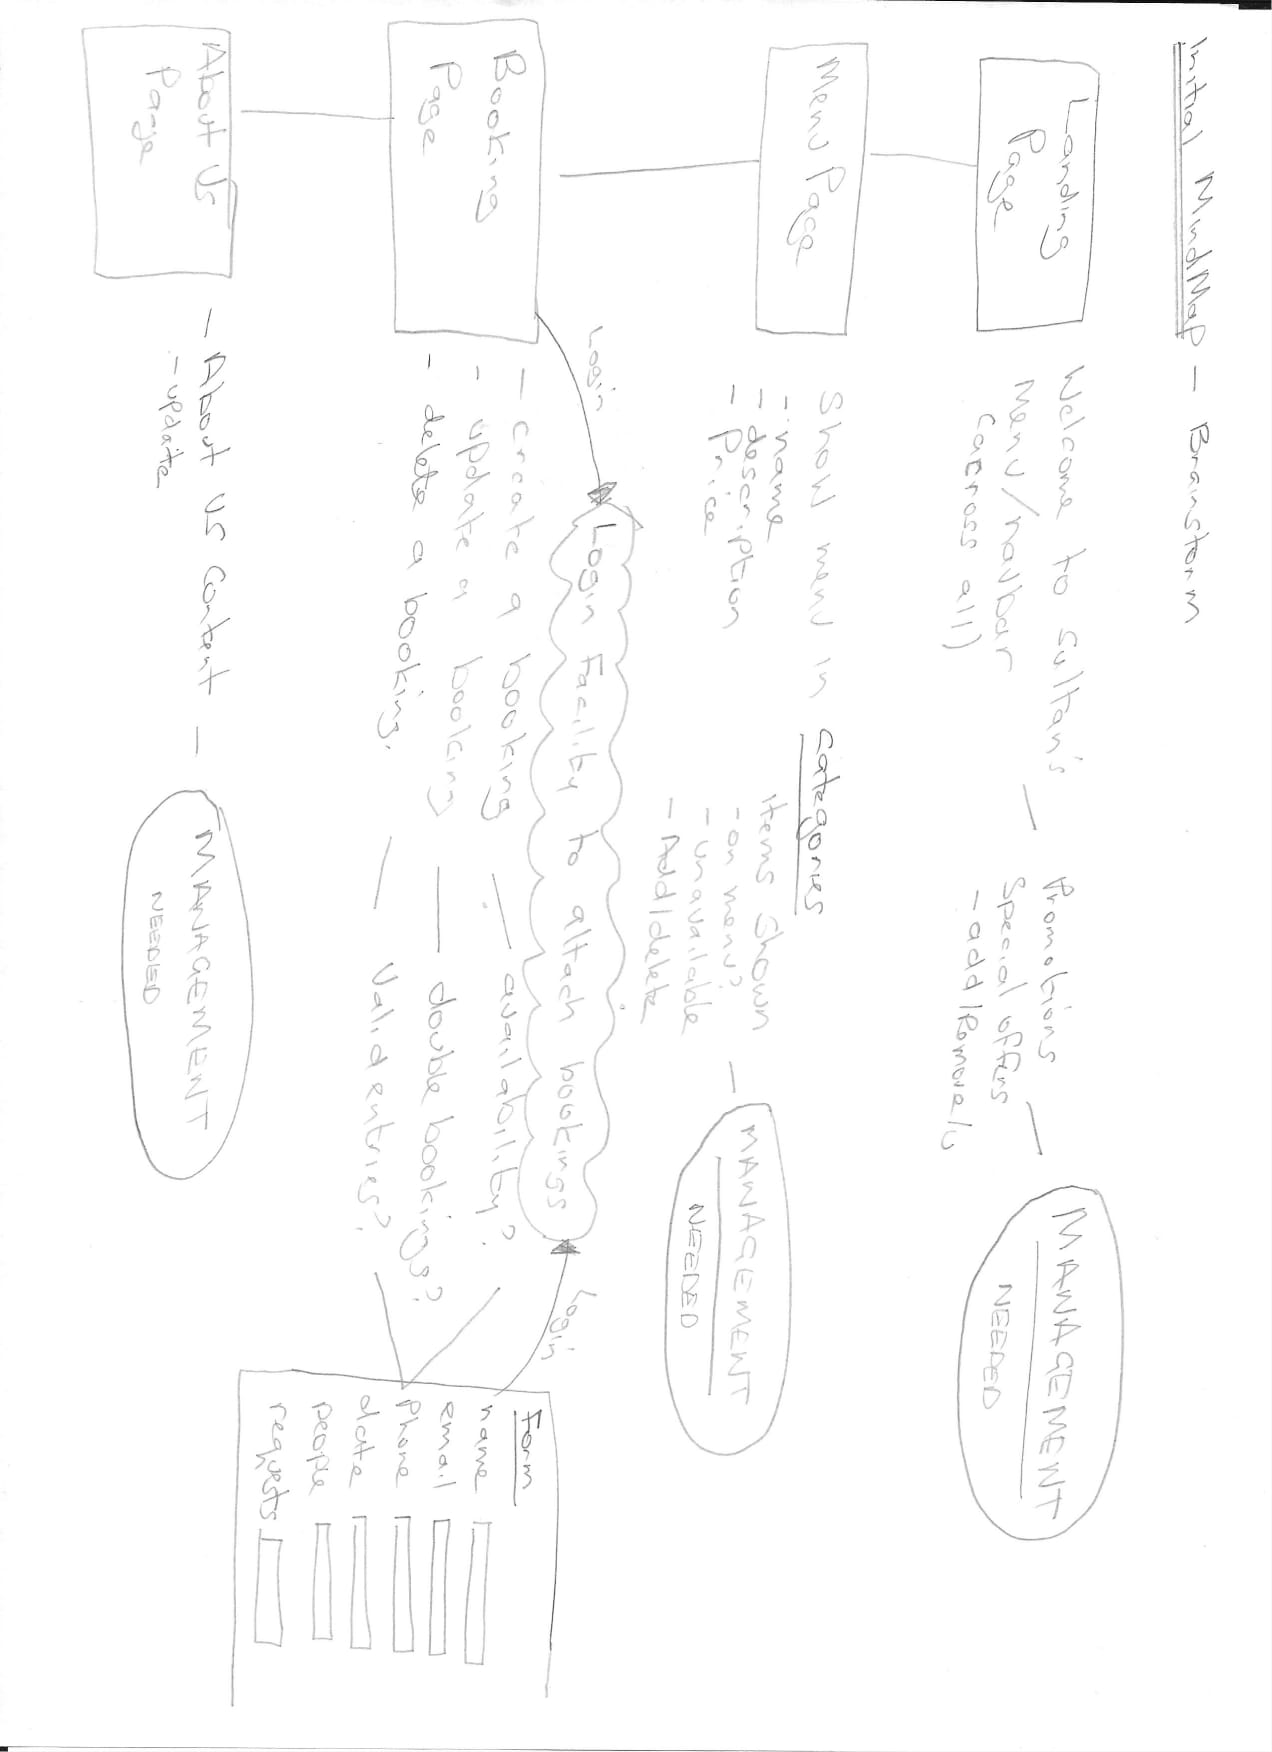 Initial MindMap - Brainstorm
Landing
Page
Welcome to Sultan's
Menu/navbar
(across all)
Promotions
Special offers
- add/Remove/u
MANAGEMENT
NEEDED
Menu Page
Show menu in categories
- name
- description
- Price
Items shown
- on menu?
- unavailable
- Add/delete
MANAGEMENT
NEEDED
Login
Login Facility to attach bookings
Login
Booking
Page
- create a booking
- update a booking
- delete a booking.
availability?
double bookings?
Valid entries?
Form
name
email
Phone
date
people
requests
About Us
Page
- About US Content
- update
MANAGEMENT
NEEDED